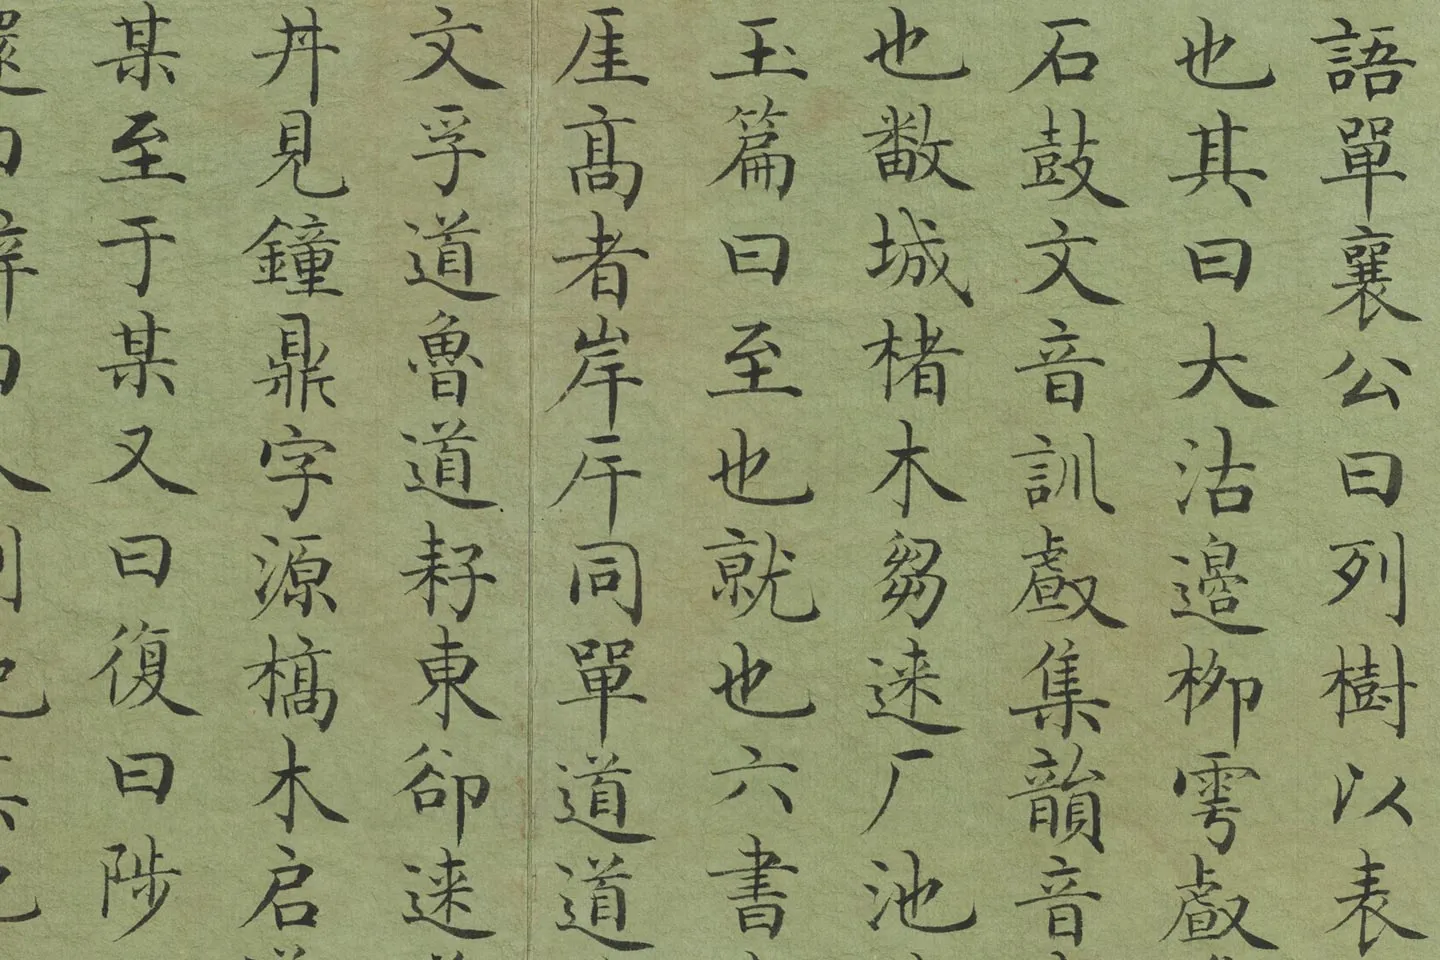 語單襄公曰列樹以表
也其曰大沽邊柳雩𢿌
石鼓文音訓𢿌集韻音
也㪚城楮木芻逨厂池
玉篇曰至也就也六書
厓高者岸厈同單道道
文孚道魯道耔東卻逨
丹見鐘鼎字源槁木启
某至于某又曰復曰陟